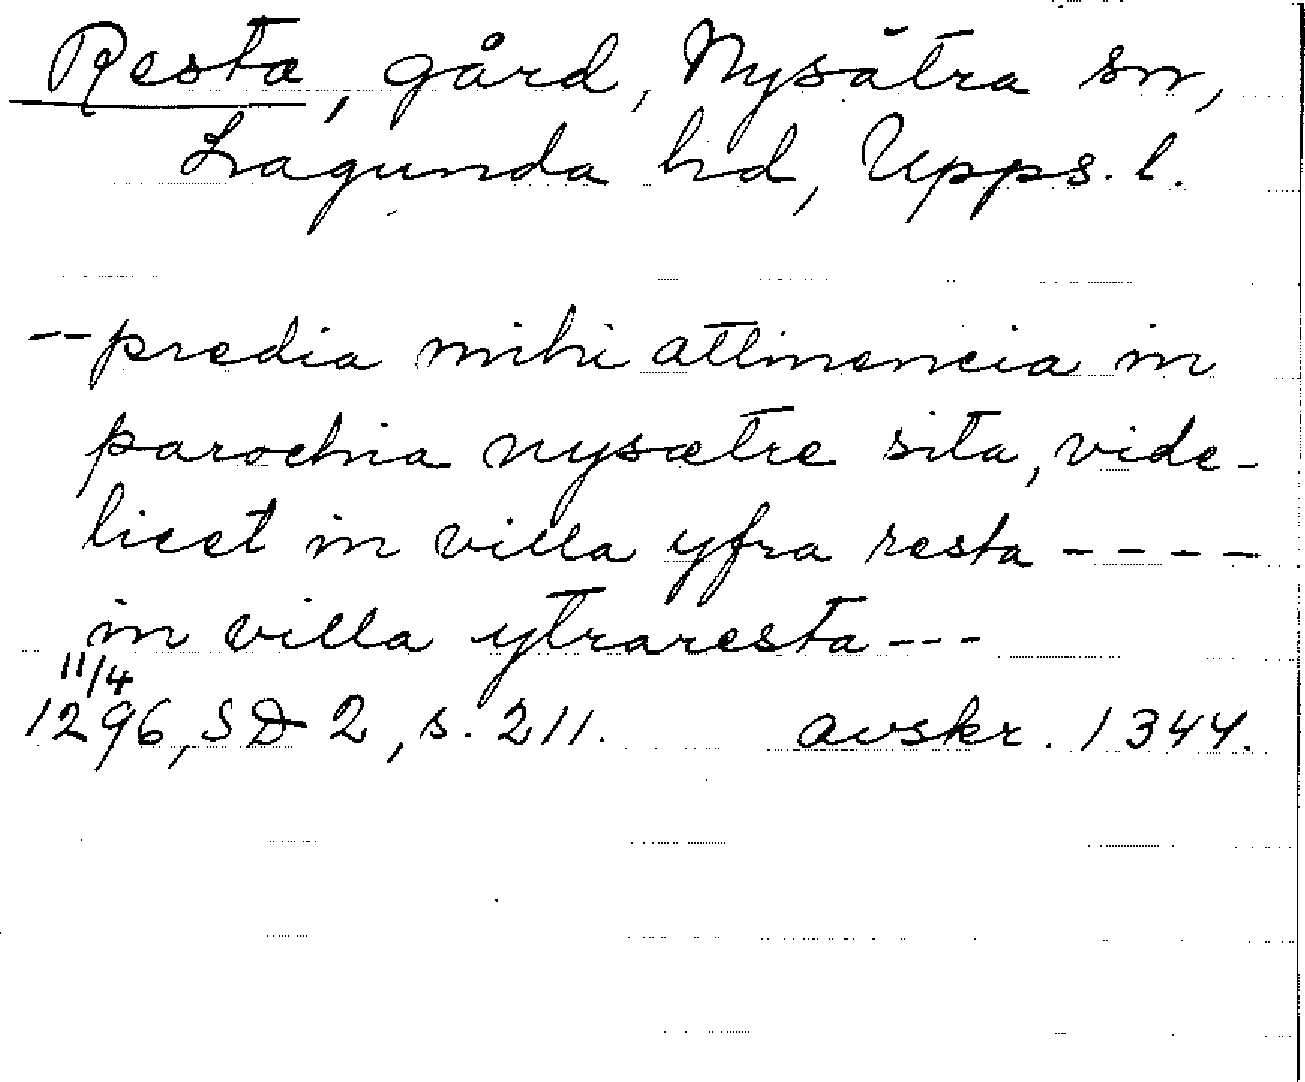 Resta, gård, Nysätra sn,
Lagunda hd, Upps. l.
-- predia mihi attinencia in
parochia nysætre sita, vide-
licet in villa yfra resta ----
in villa ytraresta ---
11/4
1296, SD 2, s. 211. avskr. 1344.